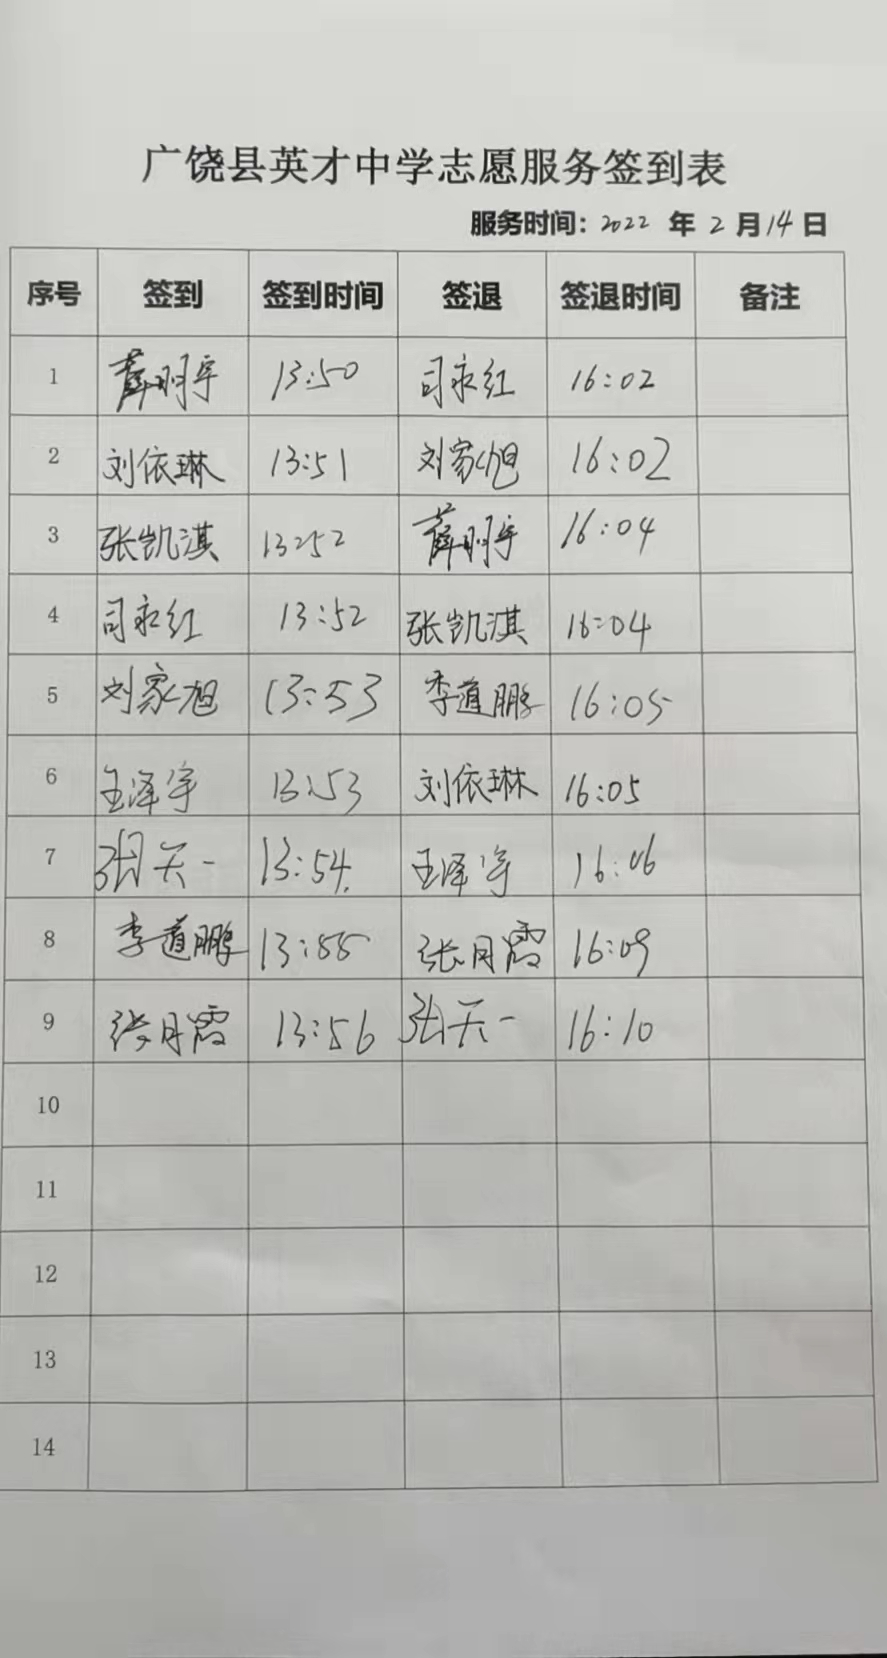 广饶县英才中学志愿服务签到表
服务时间：2022 年 2 月 14 日
序号 签到 签到时间 签退 签退时间 备注
1 薛明宇 13:50 司永红 16:02
2 刘依琳 13:51 刘家旭 16:02
3 张凯淇 13:52 薛明宇 16:04
4 司永红 13:52 张凯淇 16:04
5 刘家旭 13:53 李道鹏 16:05
6 王泽宇 13:53 刘依琳 16:05
7 张天一 13:54 王泽宇 16:06
8 李道鹏 13:55 张月霞 16:09
9 张月霞 13:56 张天一 16:10
10
11
12
13
14